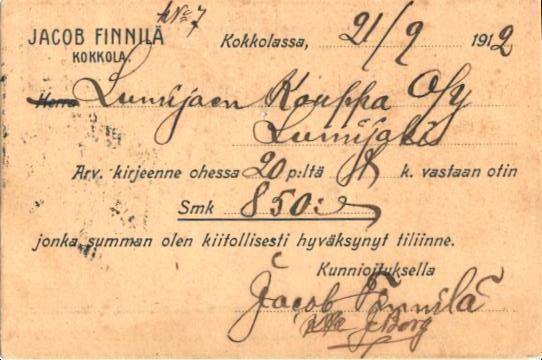 No 7
JACOB FINNILÄ
KOKKOLA.
Kokkolassa, 21/9 1912
Herra Lumijoen Kauppa O/y
Lumijoki
Arv. kirjeenne ohessa 20 p:ltä k. vastaan otin
Smk 850:
jonka summan olen kiitollisesti hyväksynyt tiliinne.
Kunnioituksella
Jacob Finnilä
Borg